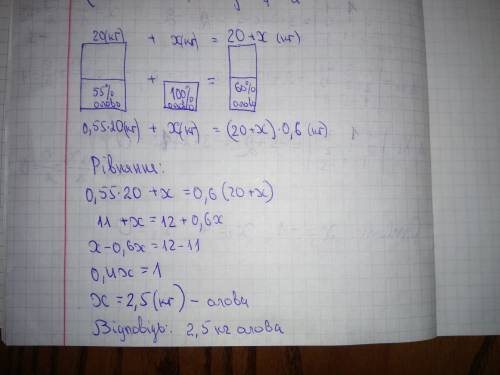 20(кг) + х(кг) = 20+х (кг)
55% олова + 100% олова = 60% олова
0,55·20(кг) + х(кг) = (20+х)·0,6 (кг)
Рівняння:
0,55·20 +х =0,6 (20+х)
11 +х = 12 + 0,6х
х-0,6х=12-11
0,4х=1
х = 2,5(кг) - олова
Відповідь: 2,5 кг олова